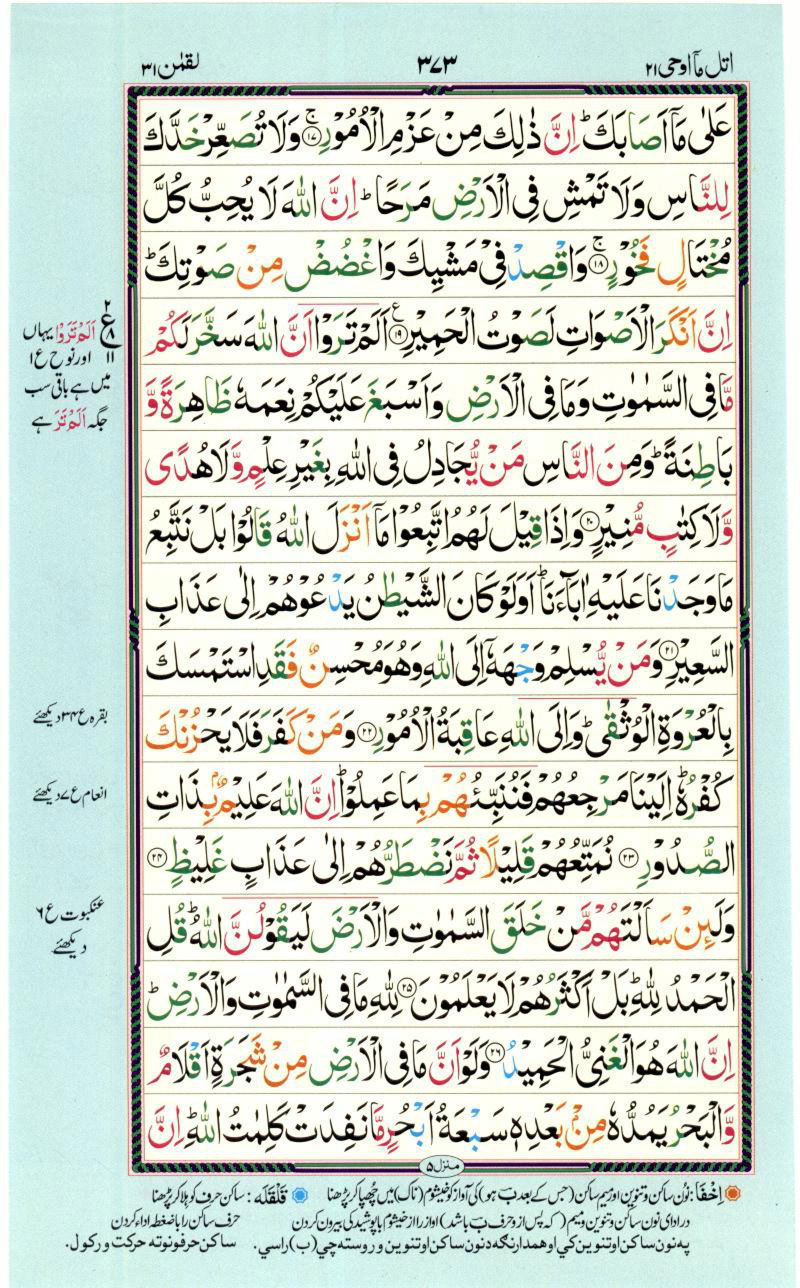 اتل ماۤ اوحی ۲۱
۳۷۳
لقمٰن ۳۱
عَلٰى مَاۤ اَصَابَكَ ؕ اِنَّ ذٰلِكَ مِنْ عَزْمِ الْاُمُوْرِ ۚ﴿۱۷﴾ وَلَا تُصَعِّرْ خَدَّكَ
لِلنَّاسِ وَلَا تَمْشِ فِى الْاَرْضِ مَرَحًا ؕ اِنَّ اللّٰهَ لَا يُحِبُّ كُلَّ
مُخْتَالٍ فَخُوْرٍ ۚ﴿۱۸﴾ وَاقْصِدْ فِىْ مَشْيِكَ وَاغْضُضْ مِنْ صَوْتِكَ ؕ
اِنَّ اَنْكَرَ الْاَصْوَاتِ لَصَوْتُ الْحَمِيْرِ ﴿۱۹﴾ ع اَلَمْ تَرَوْا اَنَّ اللّٰهَ سَخَّرَ لَكُمْ
مَّا فِى السَّمٰوٰتِ وَمَا فِى الْاَرْضِ وَاَسْبَغَ عَلَيْكُمْ نِعَمَهٗ ظَاهِرَةً وَّ
بَاطِنَةً ؕ وَمِنَ النَّاسِ مَنْ يُّجَادِلُ فِى اللّٰهِ بِغَيْرِ عِلْمٍ وَّلَا هُدًى
وَّلَا كِتٰبٍ مُّنِيْرٍ ﴿۲۰﴾ وَاِذَا قِيْلَ لَهُمُ اتَّبِعُوْا مَاۤ اَنْزَلَ اللّٰهُ قَالُوْا بَلْ نَتَّبِعُ
مَا وَجَدْنَا عَلَيْهِ اٰبَآءَنَا ؕ اَوَلَوْ كَانَ الشَّيْطٰنُ يَدْعُوْهُمْ اِلٰى عَذَابِ
السَّعِيْرِ ﴿۲۱﴾ وَمَنْ يُّسْلِمْ وَجْهَهٗۤ اِلَى اللّٰهِ وَهُوَ مُحْسِنٌ فَقَدِ اسْتَمْسَكَ
بِالْعُرْوَةِ الْوُثْقٰى ؕ وَاِلَى اللّٰهِ عَاقِبَةُ الْاُمُوْرِ ﴿۲۲﴾ وَمَنْ كَفَرَ فَلَا يَحْزُنْكَ
كُفْرُهٗ ؕ اِلَيْنَا مَرْجِعُهُمْ فَنُنَبِّئُهُمْ بِمَا عَمِلُوْا ؕ اِنَّ اللّٰهَ عَلِيْمٌۢ بِذَاتِ
الصُّدُوْرِ ﴿۲۳﴾ نُمَتِّعُهُمْ قَلِيْلًا ثُمَّ نَضْطَرُّهُمْ اِلٰى عَذَابٍ غَلِيْظٍ ﴿۲۴﴾
وَلَئِنْ سَاَلْتَهُمْ مَّنْ خَلَقَ السَّمٰوٰتِ وَالْاَرْضَ لَيَقُوْلُنَّ اللّٰهُ ؕ قُلِ
الْحَمْدُ لِلّٰهِ ؕ بَلْ اَكْثَرُهُمْ لَا يَعْلَمُوْنَ ﴿۲۵﴾ لِلّٰهِ مَا فِى السَّمٰوٰتِ وَالْاَرْضِ ؕ
اِنَّ اللّٰهَ هُوَ الْغَنِىُّ الْحَمِيْدُ ﴿۲۶﴾ وَلَوْ اَنَّ مَا فِى الْاَرْضِ مِنْ شَجَرَةٍ اَقْلَامٌ
وَّالْبَحْرُ يَمُدُّهٗ مِنْۢ بَعْدِهٖ سَبْعَةُ اَبْحُرٍ مَّا نَفِدَتْ كَلِمٰتُ اللّٰهِ ؕ اِنَّ
۲
ع ۸
۱۱
اَلَمْ تَرَوْا یہاں
اور نوح ع ۱
میں ہے باقی سب
جگہ اَلَمْ تَرَ ہے
بقرہ ع ۳۴ دیکھئے
انعام ع ۷ دیکھئے
عنکبوت ع ۶
دیکھئے
منزل ۵
اِخْفَا: نون ساکن و تنوین اور میم ساکن (جس کے بعد ب ہو) کی آواز کو خیشوم (ناک) میں چھپا کر پڑھنا
قَلْقَلَه: ساکن حرف کو ہلا کر پڑھنا
در ادای نون ساکن و تنوین و میم (که پس از و حرف ب باشد) آواز را از خیشوم با پوشیدگی بیرون کردن
حرف ساکن را باضغطه اداء کردن
په نون ساکن او تنوین کې او همدارنګه د نون ساکن او تنوین و روسته چې (ب) راسي.
ساکن حرفونو ته حرکت ورکول.